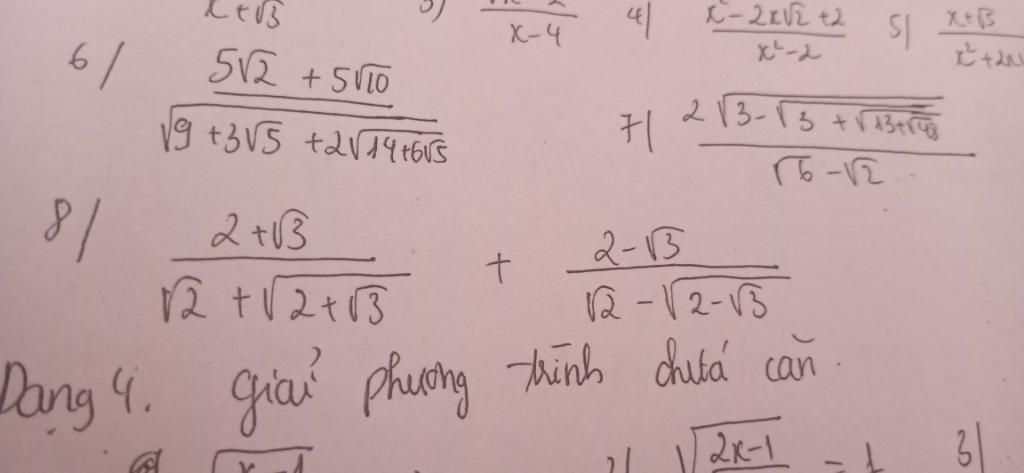 x+√3 3) x-4 4| x²-2x√2+2 / x²-2 5| x+√3
6/ (5√2 + 5√10) / √(9+3√5+2√(14+6√5))
7| 2√(3-√(3+√(13+√48))) / (√6-√2)
8/ (2+√3) / (√2+√(2+√3)) + (2-√3) / (√2-√(2-√3))
Dạng 4. giải phương trình chứa căn.
2| √(2x-1 = 1 3|